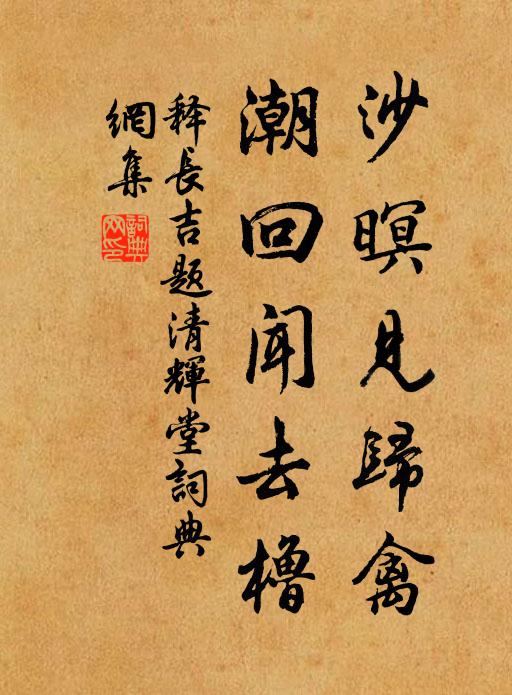 沙暝見歸禽
潮回闻去櫓
释長吉题清輝堂詞典
網集
詞典
网印